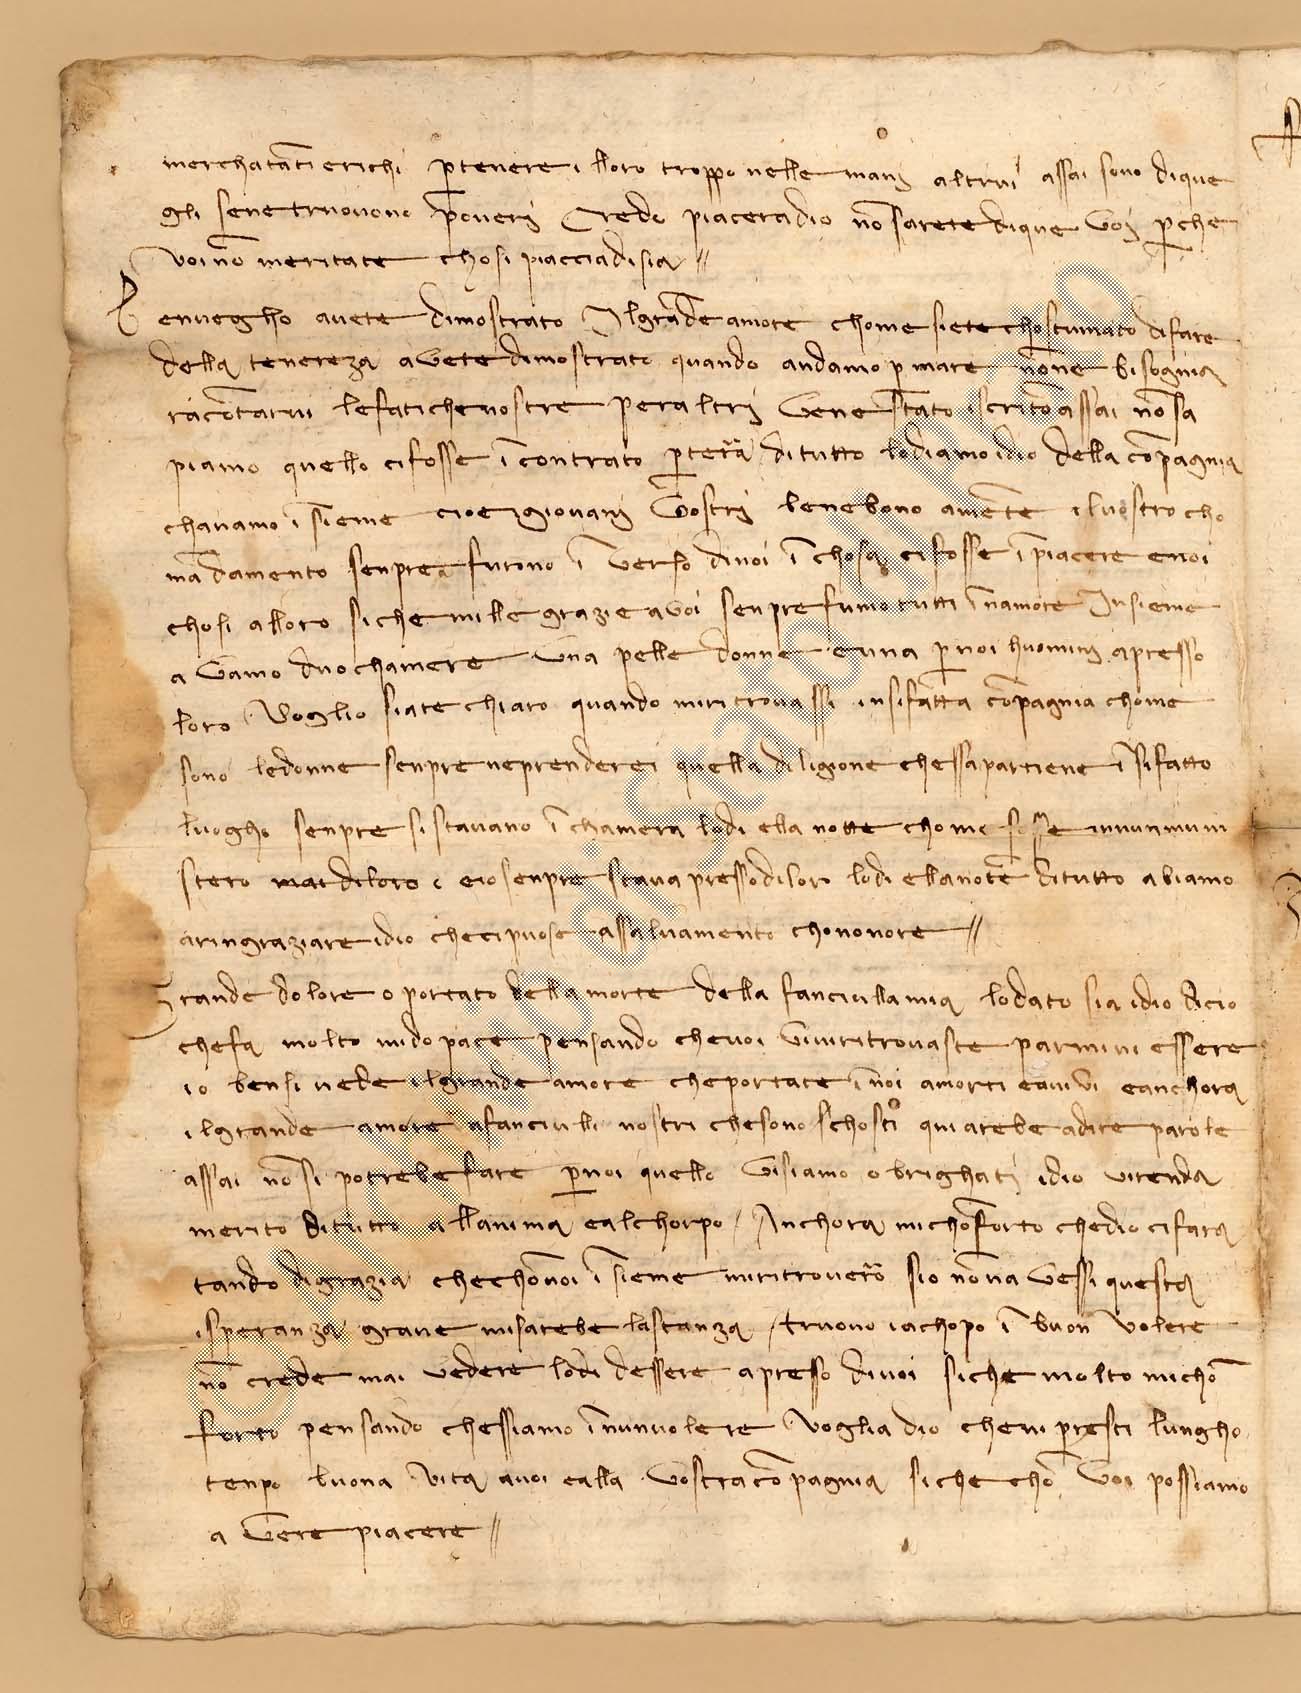 merchatāti e richi p tenere i lloro troppo nelle mani altrui assai sono di que
gli se ne truovono poveri Credo piacera dio nō sarete di que voi p che
voi nō meritate chosi piaccia di sia //
E en vegho avete dimostrato Il grāde amore chome siete chostumato di fare
della tenereza avete dimostrato quando andamo p mare nōne bisognia
racōtarvi le fatiche nostre per altri Vene stato iscritto assai nō sa
piamo quello ci fosse ī contrato p terā di tutto lodiamo idio della cōpagnia
ch avamo īsieme cioe i giovani Vostri bene bono amēte i lvostro cho
mādamento senpre furono ī verso di noi ī chosa ci fosse ī piacere e noi
chosi alloro siche mille grazie a voi senpre fumo tutti ī namore Insieme
a Vamo duo chamere una pelle donne e una p noi huomini apresso
loro Voglio siate chiaro quando mi ritrovassi in sifatta cōpagnia chome
sono le donne senpre ne prenderei quella diligione chessa partiene ī sifatto
luogho senpre si stavano ī chamera lo di ella notte chome fosse innun muni
stero e io senpre stava presso di lor lo di ella notte di tutto abiamo
a ringraziare idio che ci puose assalvamento chon onore //
Grande dolore o portato della morte della fanciulla mia lodato sia idio di cio
che fa molto mi do pace pensando che voi Vi vi ritrovaste parmi vi essere
io ben si vede il grande amore che portate ī noi a morti e a vivi e anchora
il grande amore a fanciulli nostri che sono schosti qui arebe a dire parole
assai nō si potrebe fare p noi quello Visiamo obrighati idio vi renda
merito di tutto all anima e al chorpo / Anchora mi chōforto che dio ci fara
tanto di grazia che chō voi īsieme mi ritrovero s io nō n avessi questa
isperanza grave mi sarebe la stanza / truovo iachopo ī buon volere
nō crede mai vedere lo di d essere apresso di voi siche molto mi chō
forto pensando chessiamo ī nun volere Voglia dio che vi presti lungho
tenpo buona Vita a voi e alla Vostra cōpagnia siche chō Voi possiamo
a Vere piacere //